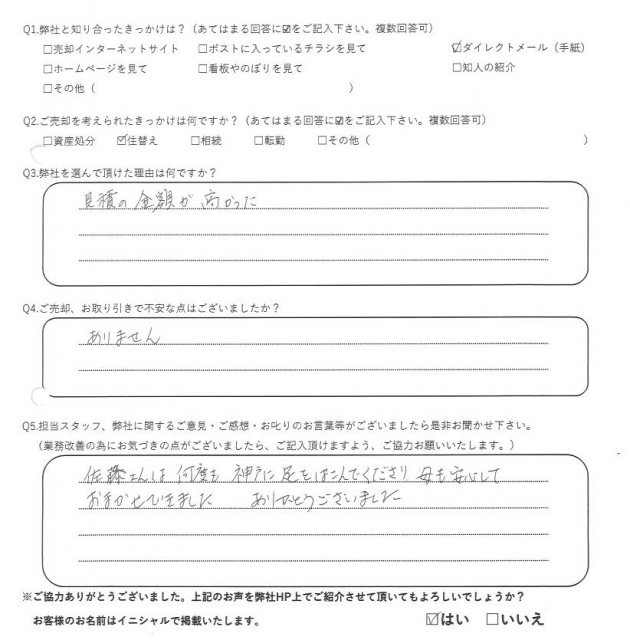 Q1.弊社と知り合ったきっかけは？（あてはまる回答に☑をご記入下さい。複数回答可）
□売却インターネットサイト □ポストに入っているチラシを見て ☑ダイレクトメール（手紙）
□ホームページを見て □看板やのぼりを見て □知人の紹介
□その他（ ）
Q2.ご売却を考えられたきっかけは何ですか？（あてはまる回答に☑をご記入下さい。複数回答可）
□資産処分 ☑住替え □相続 □転勤 □その他（ ）
Q3.弊社を選んで頂けた理由は何ですか？
見積の金額が高かった
Q4.ご売却、お取り引きで不安な点はございましたか？
ありません
Q5.担当スタッフ、弊社に関するご意見・ご感想・お叱りのお言葉等がございましたら是非お聞かせ下さい。
（業務改善の為にお気づきの点がございましたら、ご記入頂けますよう、ご協力お願いいたします。）
佐藤さんは 何度も 神戸に 足をはこんでくださり 母も安心して
おまかせできました ありがとうございました
※ご協力ありがとうございました。上記のお声を弊社HP上でご紹介させて頂いてもよろしいでしょうか？
お客様のお名前はイニシャルで掲載いたします。 ☑はい □いいえ